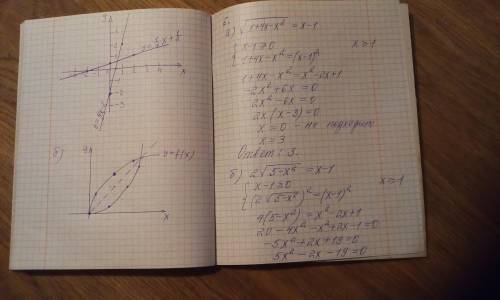 y
y=½x+½
-1 1 2 3 4 x
-2
-3
б) y
y=f(x)
x
6.
а) √(1+4x-x²) = x-1
{ x-1≥0 x≥1
1+4x-x²=(x-1)²
1+4x-x² = x²-2x+1
-2x²+6x=0
2x²-6x=0
2x(x-3)=0
x=0 - не подходит
x=3
Ответ: 3.
б) 2√(5-x²) = x-1
{ x-1≥0 x≥1
(2√(5-x²))²=(x-1)²
4(5-x²)=x²-2x+1
20-4x²-x²+2x-1=0
-5x²+2x+19=0
5x²-2x-19=0